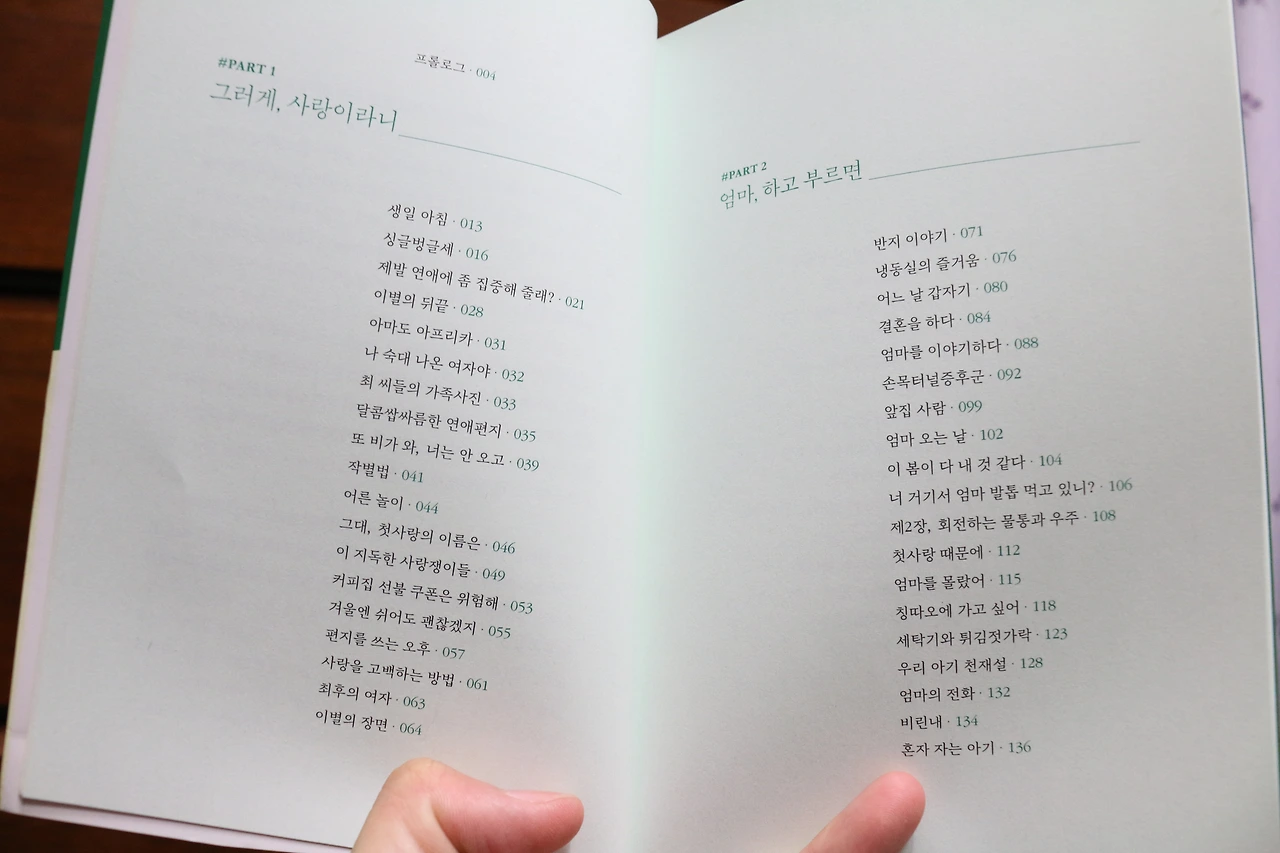 프롤로그 · 004
#PART 1
그러게, 사랑이라니
생일 아침 · 013
싱글벙글세 · 016
제발 연애에 좀 집중해 줄래? · 021
이별의 뒤끝 · 028
아마도 아프리카 · 031
나 숙대 나온 여자야 · 032
최 씨들의 가족사진 · 033
달콤쌉싸름한 연애편지 · 035
또 비가 와, 너는 안 오고 · 039
작별법 · 041
어른 놀이 · 044
그대, 첫사랑의 이름은 · 046
이 지독한 사랑쟁이들 · 049
커피집 선불 쿠폰은 위험해 · 053
겨울엔 쉬어도 괜찮겠지 · 055
편지를 쓰는 오후 · 057
사랑을 고백하는 방법 · 061
최후의 여자 · 063
이별의 장면 · 064
#PART 2
엄마, 하고 부르면
반지 이야기 · 071
냉동실의 즐거움 · 076
어느 날 갑자기 · 080
결혼을 하다 · 084
엄마를 이야기하다 · 088
손목터널증후군 · 092
앞집 사람 · 099
엄마 오는 날 · 102
이 봄이 다 내 것 같다 · 104
너 거기서 엄마 발톱 먹고 있니? · 106
제2장, 회전하는 물통과 우주 · 108
첫사랑 때문에 · 112
엄마를 몰랐어 · 115
칭따오에 가고 싶어 · 118
세탁기와 튀김젓가락 · 123
우리 아기 천재설 · 128
엄마의 전화 · 132
비린내 · 134
혼자 자는 아기 · 136